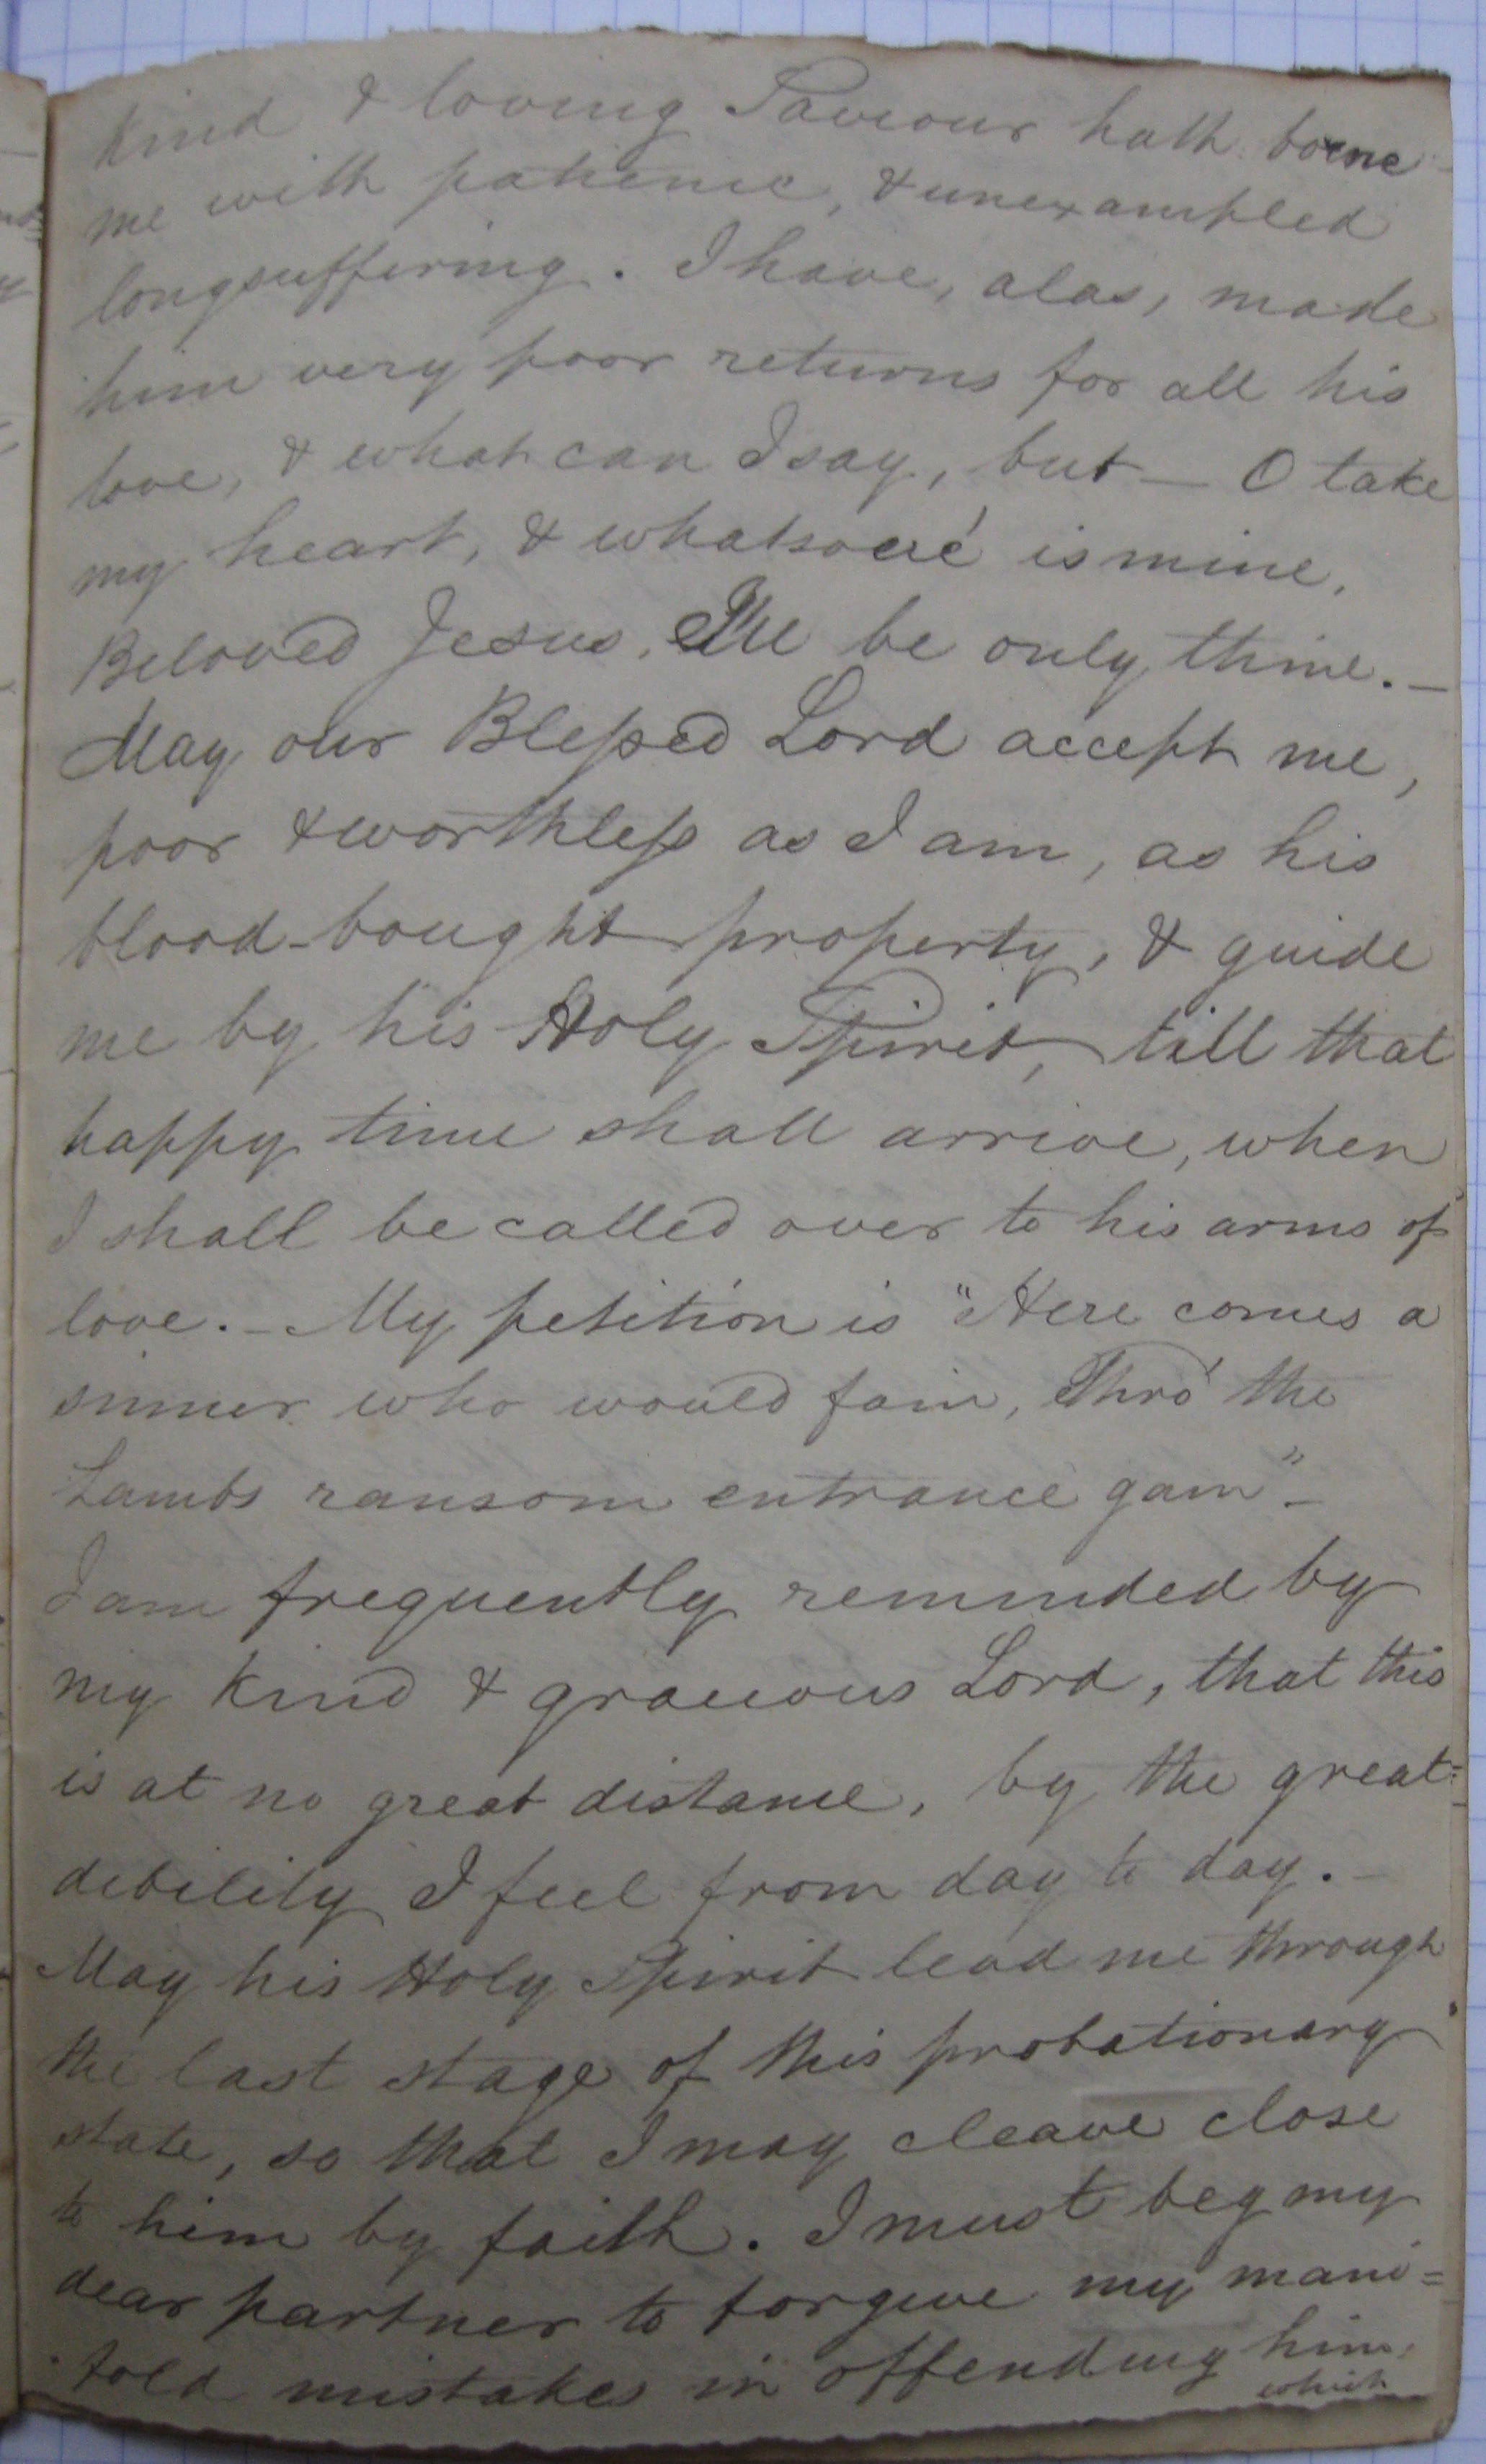 kind & loving Saviour hath borne
me with patience, & unexampled
longsuffering. I have, alas, made
him very poor returns for all his
love, & what can I say, but — O take
my heart, & whatsoere' is mine,
Beloved Jesus, I'll be only thine. —
May our Blessed Lord accept me,
poor & worthless as I am, as his
blood-bought property, & guide
me by his Holy Spirit, till that
happy time shall arrive, when
I shall be called over to his arms of
love. — My petition is "Here comes a
sinner who would fain, Thro' the
Lambs ransom entrance gain" —
I am frequently reminded by
my kind & gracious Lord, that this
is at no great distance, by the great
debility I feel from day to day. —
May his Holy Spirit lead me through
the last stage of this probationary
state, so that I may cleave close
to him by faith. I must beg my
dear partner to forgive my mani=
fold mistakes in offending him,
which